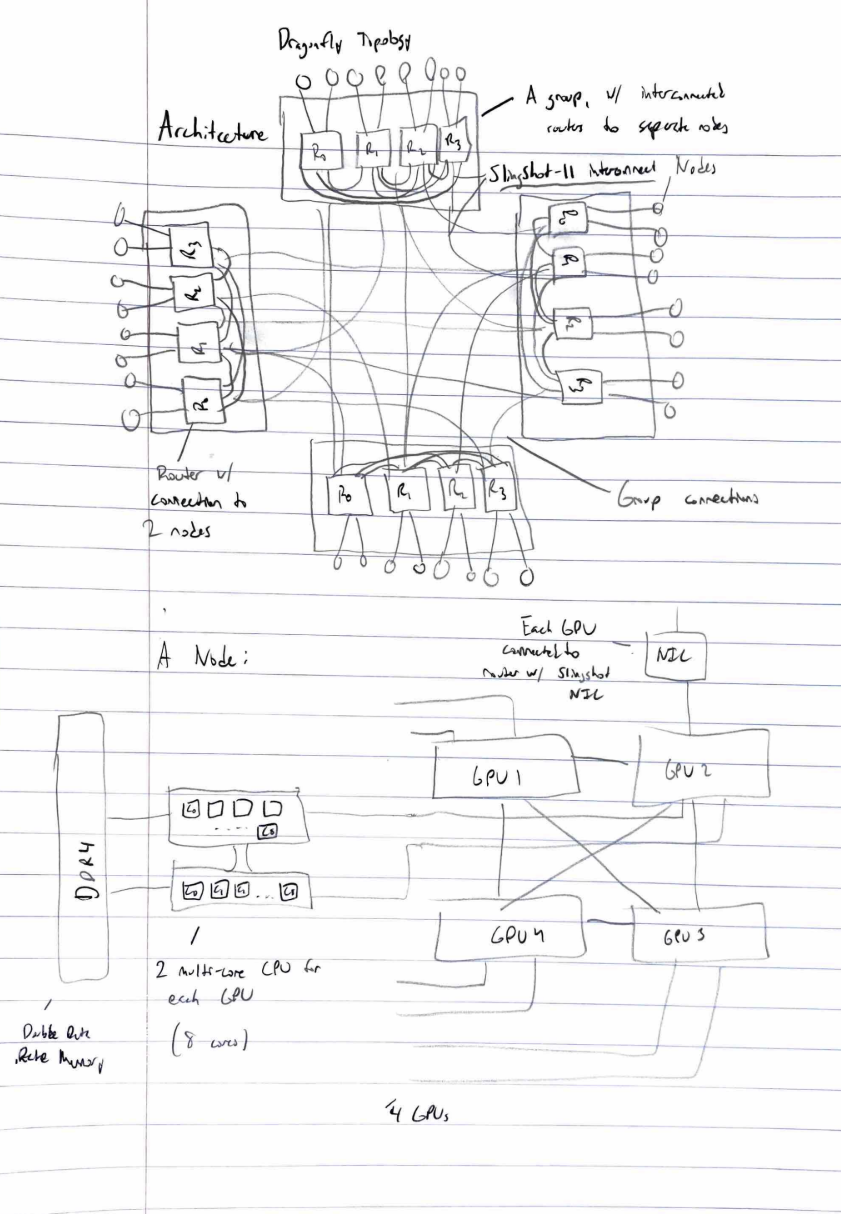 Dragonfly Topology
Architecture
A group, w/ interconnected
routers to separate nodes
Slingshot-11 interconnect
Nodes
R0 R1 R2 R3
R3
R2
R1
R0
R0
R1
R2
R3
Router w/
connection to
2 nodes
R0 R1 R2 R3
Group connections
A Node:
Each GPU
connected to
router w/ Slingshot
NIC
NIC
GPU 1
GPU 2
DDR4
C0
C8
C0 C1 C1 ... C8
GPU 4
GPU 3
2 multi-core CPU for
each GPU
(8 cores)
Double Rate
Memory
4 GPUs